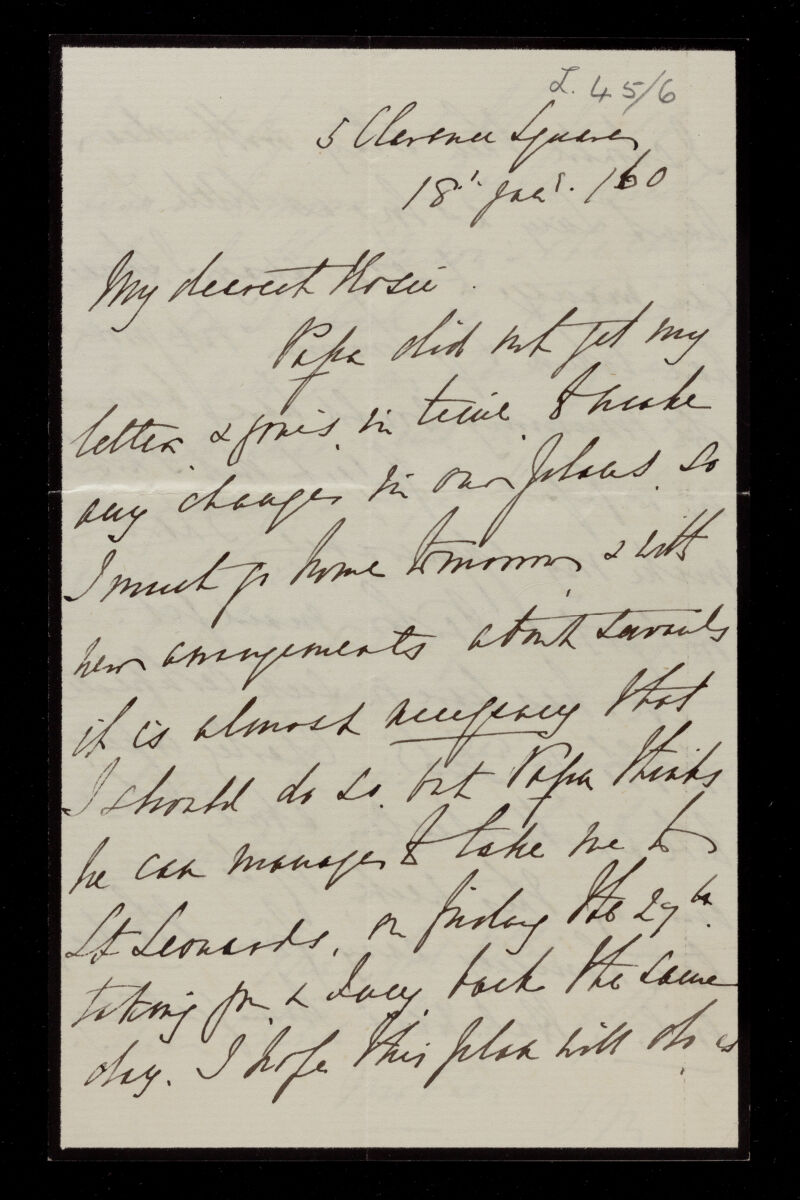 L. 45/6
5 Clarence Square
18th Jany. 1860
My dearest Rosie.
Papa did not get my
letter & yours in time to make
any changes in our plans. so
I must go home tomorrow & with
new arrangements about servants
it is almost necessary that
I should do so. but Papa thinks
he can manage to take me to
St Leonards, on Friday the 27th.
taking you & Lucy back the same
day. I hope this plan will do as